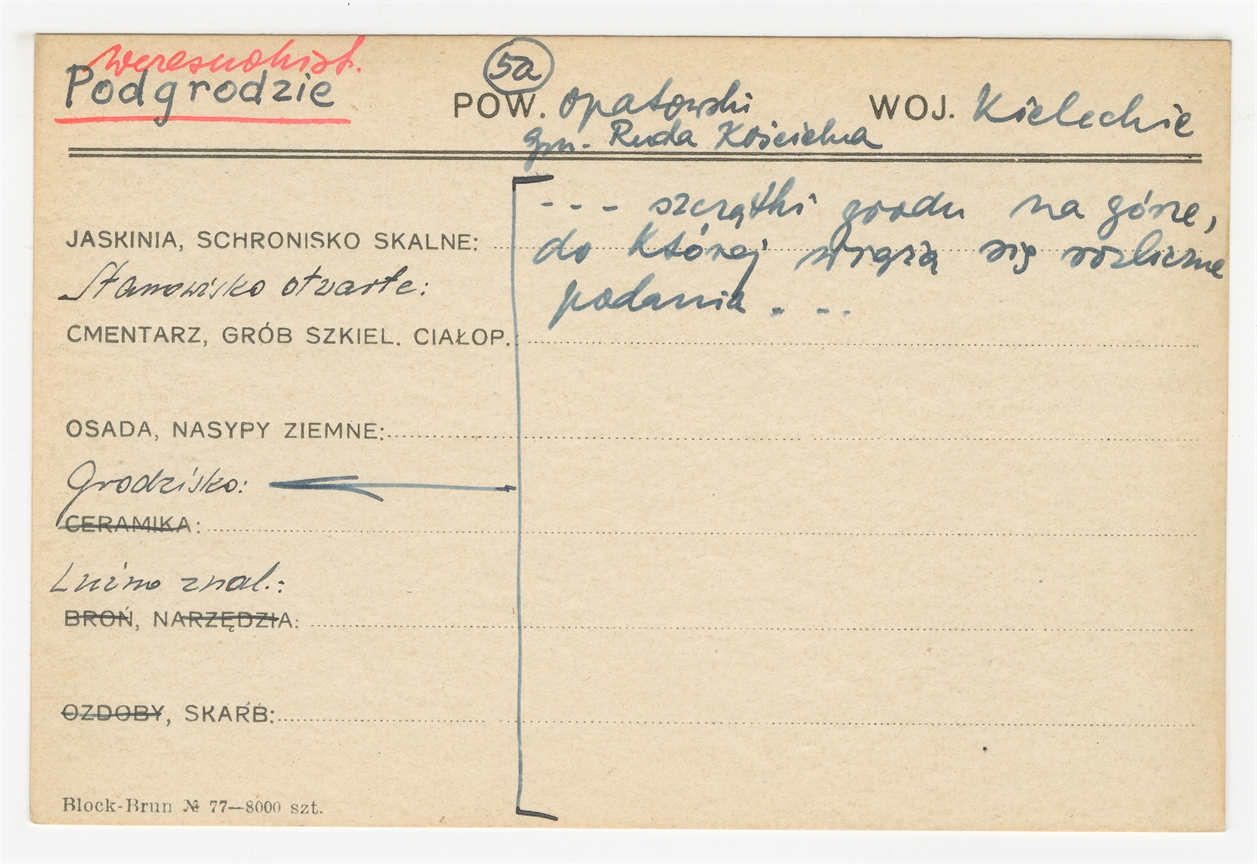 wczesnohist.
Podgrodzie
5a
POW. opatowski
WOJ. Kieleckie
gm. Ruda Kościelna
--- szczątki grodu na górze,
JASKINIA, SCHRONISKO SKALNE:
do której wiążą się rozliczne
Stanowisko otwarte:
podania . . .
CMENTARZ, GRÓB SZKIEL. CIAŁOP.
OSADA, NASYPY ZIEMNE:
Grodzisko:
CERAMIKA:
Luźne znal.:
BROŃ, NARZĘDZIA:
OZDOBY, SKARB:
Block-Brun № 77—8000 szt.